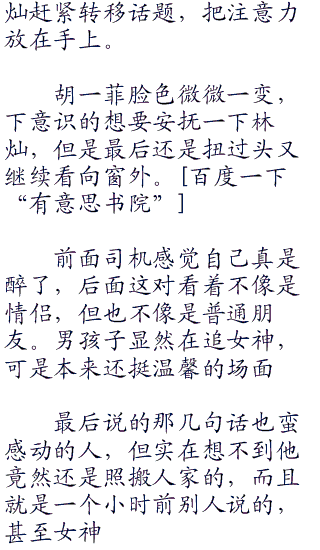 灿赶紧转移话题，把注意力
放在手上。
胡一菲脸色微微一变，
下意识的想要安抚一下林
灿，但是最后还是扭过头又
继续看向窗外。[百度一下
“有意思书院”]
前面司机感觉自己真是
醉了，后面这对看着不像是
情侣，但也不像是普通朋
友。男孩子显然在追女神，
可是本来还挺温馨的场面
最后说的那几句话也蛮
感动的人，但实在想不到他
竟然还是照搬人家的，而且
就是一个小时前别人说的，
甚至女神